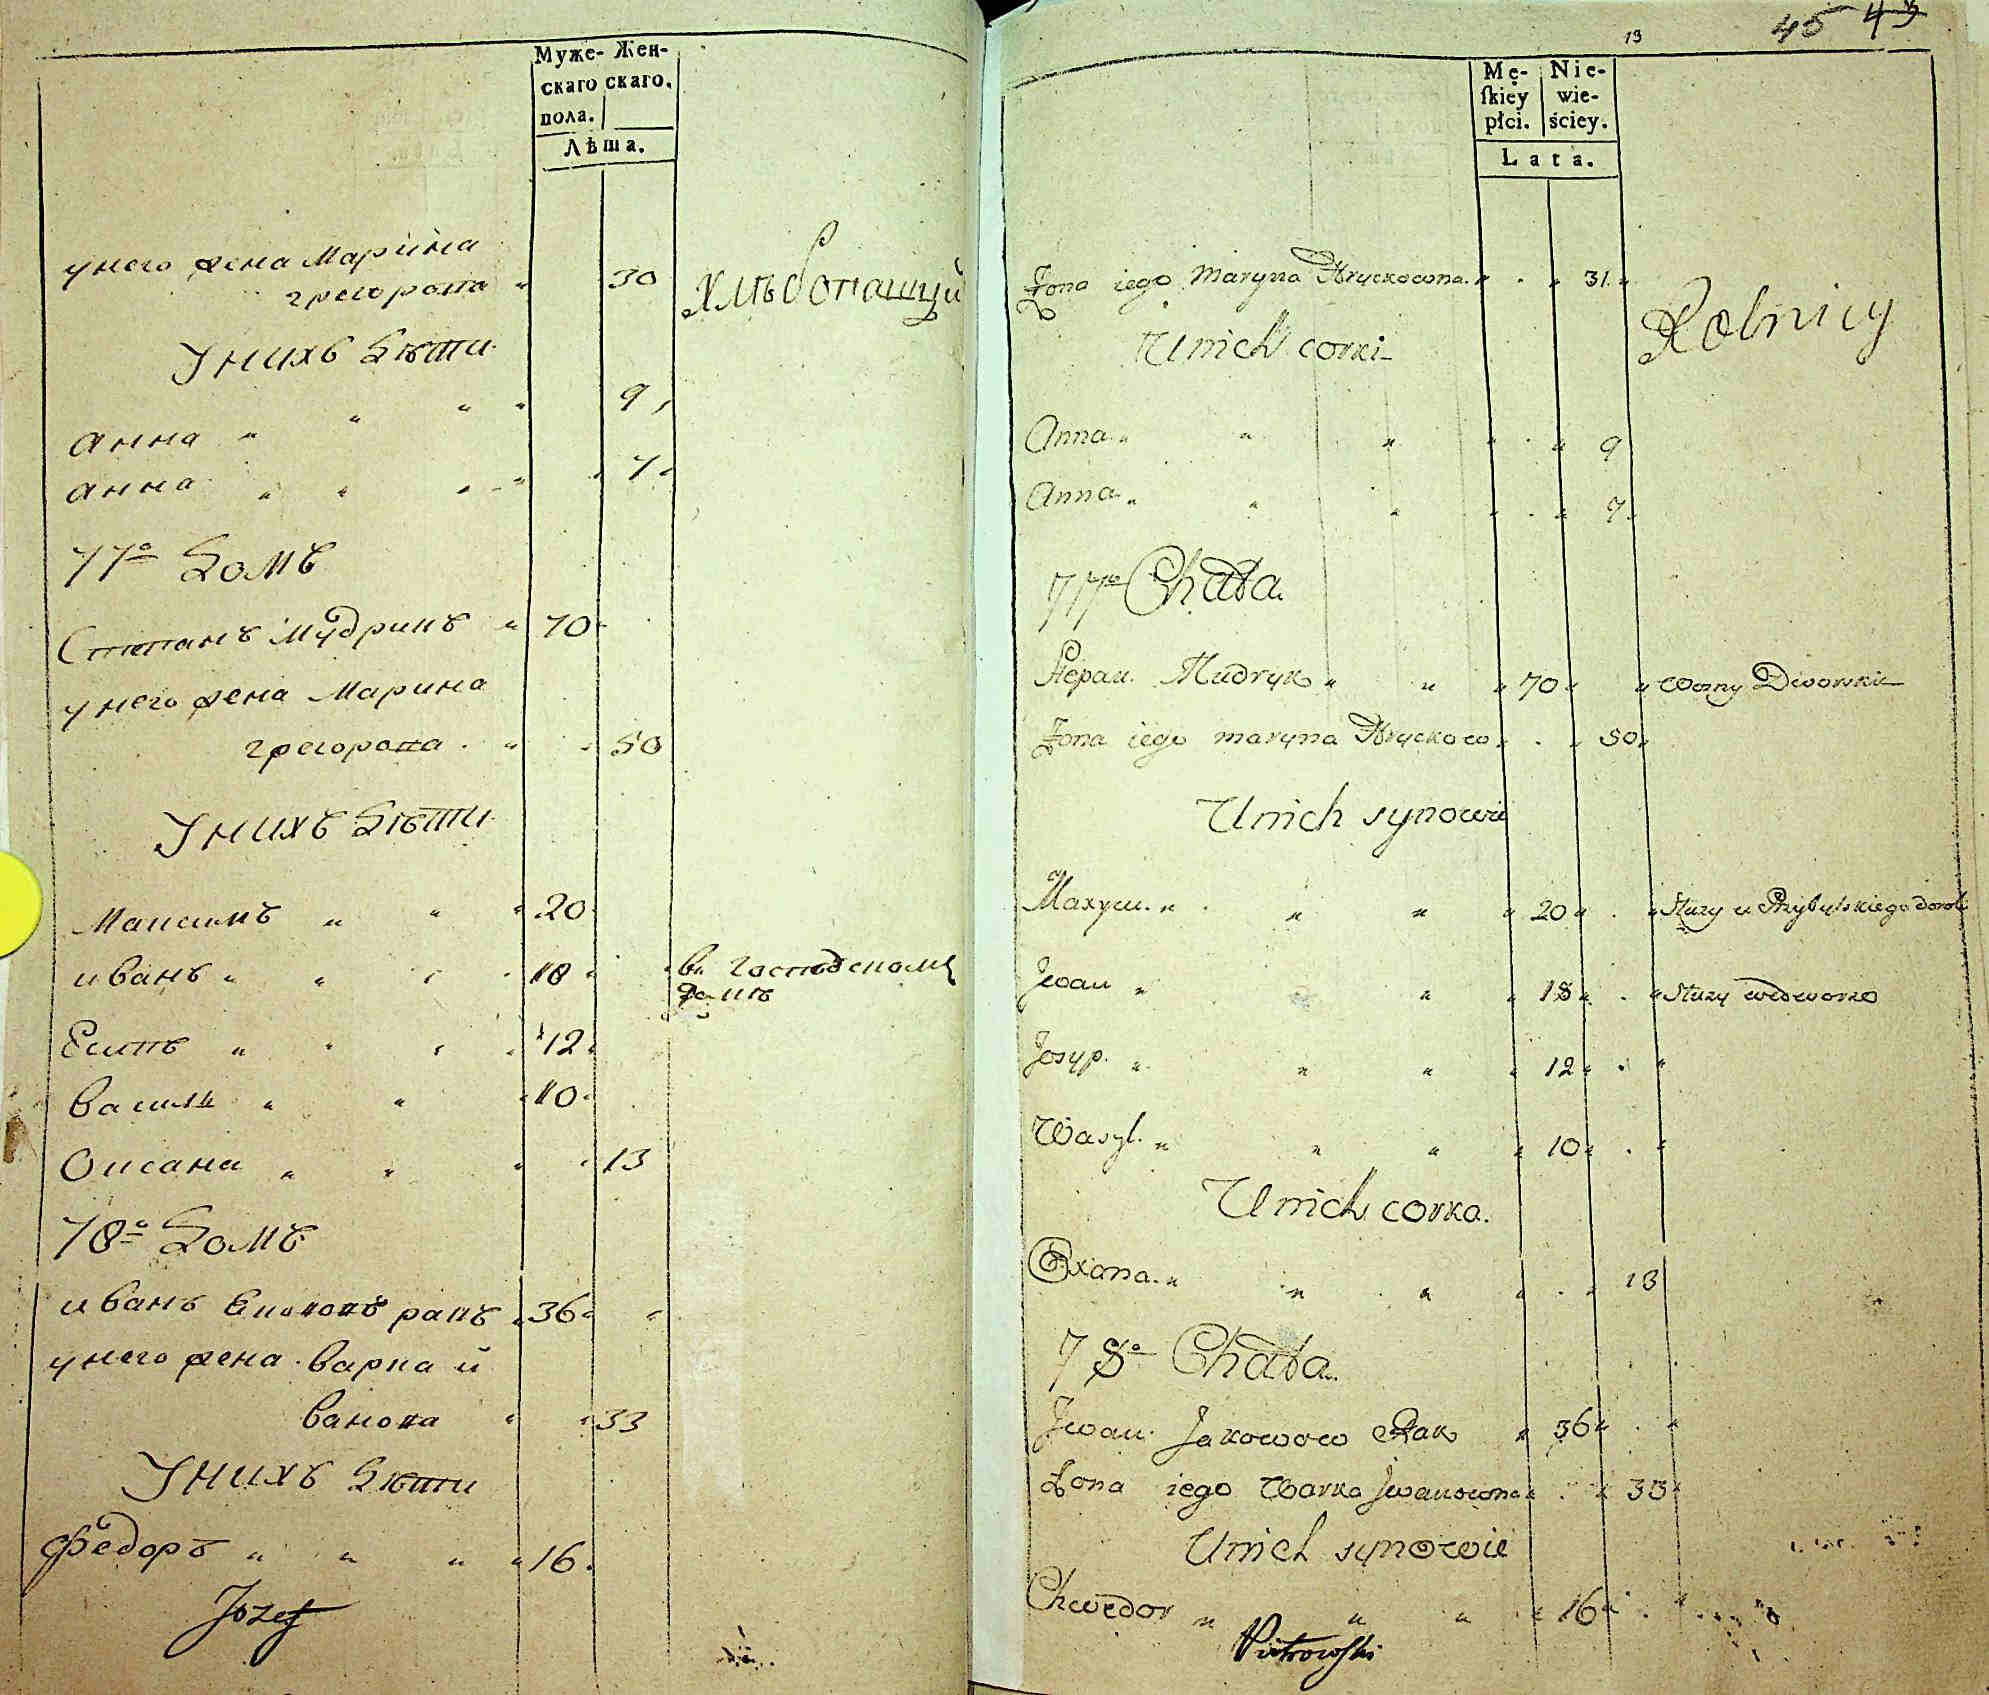 Муже- Жен-
скаго скаго.
пола.
Лѣта.
унего жена Марина
грегорова " 30 Хлѣбопашцы
Унихъ дѣти
анна " " " " 9
анна " " " " 7
77о домъ
Степанъ Мудрикъ " 70
унего жена Марина
грегорова " " 50
Унихъ дѣти
Максимъ " " " 20
иванъ " " " 18 " в господскомъ
Есипъ " " " 12
василь " " " 10
Оксана " " " 13
78о домъ
иванъ ракъ 36
унего жена варка и
ванова " 33
Унихъ дѣти
федоръ " " " 16
Jozef
45 43
13
Mę- Nie-
ſkiey wie-
płci. ściey.
Lata.
Żona iego Maryna Hryckowna " " 31
Rolnicy
Unich corki
Anna " " " " " 9
Anna " " " " " 7
77o Chata
Stepan Mudryk " " " 70 " " Dworski
Żona iego maryna Hryckow " " 50
Unich synowie
Maxym " " " " 20 " " Służy u Przybylskiego
Jwan " " " 18 " " Służy wedworze
Josyp " " " " 12 " "
Wasyl " " " " 10 " "
Unich corka
Oxana " " " " " 13
78o Chata
Jwan Jakowow Rak " 36 " "
Żona iego Warka Jwanowna " " 33
Unich synowie
Chwedor " " " " 16 " "
Piotrowski